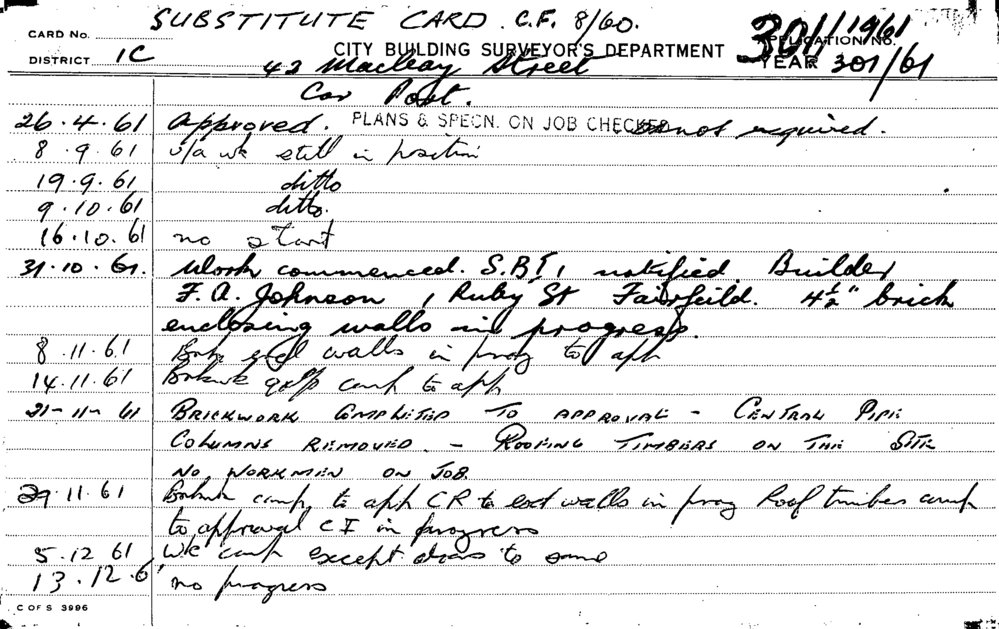 SUBSTITUTE CARD. C.F. 8/60.
CARD No.
301/1961
APPLICATION No.
CITY BUILDING SURVEYOR'S DEPARTMENT
DISTRICT 1C
YEAR 301/61
42 Macleay Street
Car Port.
26.4.61 Approved. PLANS & SPECN. ON JOB CHECKED not required.
8.9.61 u/a wk still in position
19.9.61 ditto
9.10.61 ditto.
16.10.61 no start
31.10.61. Work commenced. S.B.I, notified Builder
F. A. Johnson, Ruby St Fairfield. 4½" brick
enclosing walls in progress.
8.11.61 encl walls in prog to app
14.11.61 comp to app
21-11-61 BRICKWORK COMPLETED TO APPROVAL - CENTRAL PIPE
COLUMNS REMOVED. - ROOFING TIMBERS ON THE SITE
NO WORKMEN ON JOB.
29.11.61 comp to app CR to ext walls in prog Roof timber comp
to approval C I in progress
5.12 61 wk comp except doors to same
13.12.6 no progress
C OF S 3996